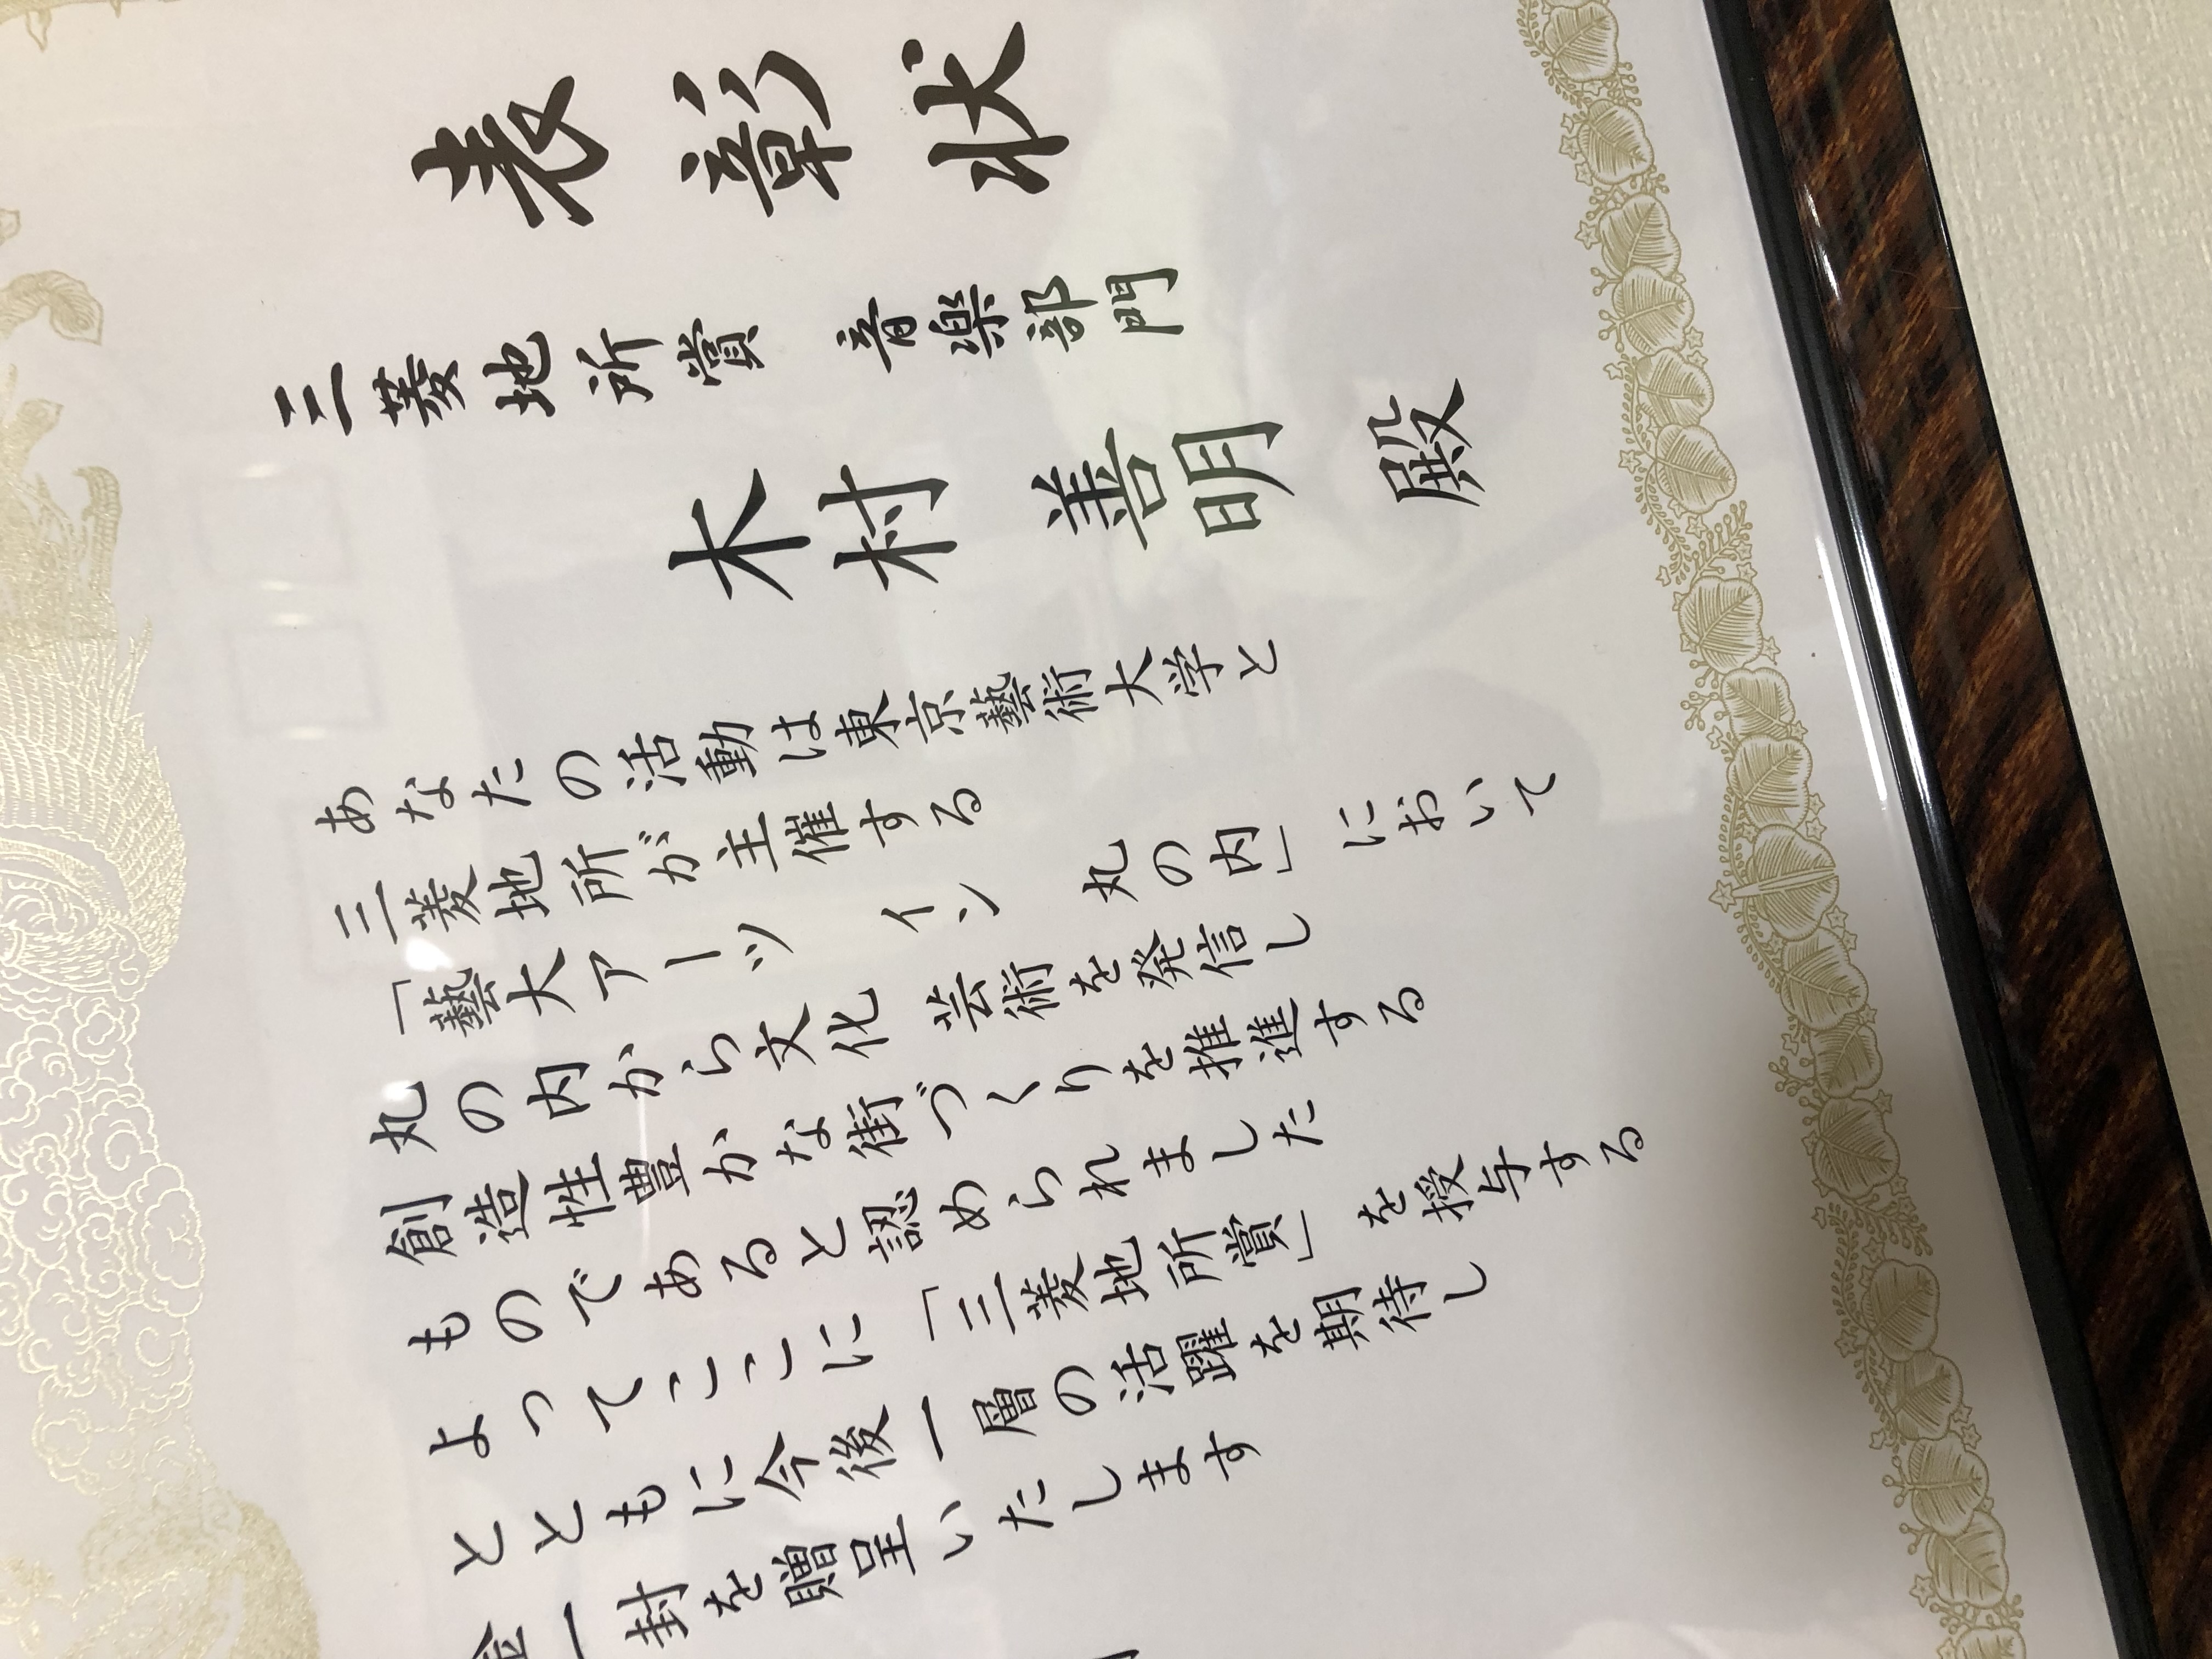 表彰状
三菱地所賞 音楽部門
木村 善明 殿
あなたの活動は東京藝術大学と
三菱地所が主催する
「藝大アーツ イン 丸の内」において
丸の内から文化 芸術を発信し
創造性豊かな街づくりを推進する
ものであると認められました
よってここに「三菱地所賞」を授与する
とともに今後一層の活躍を期待し
金一封を贈呈いたします